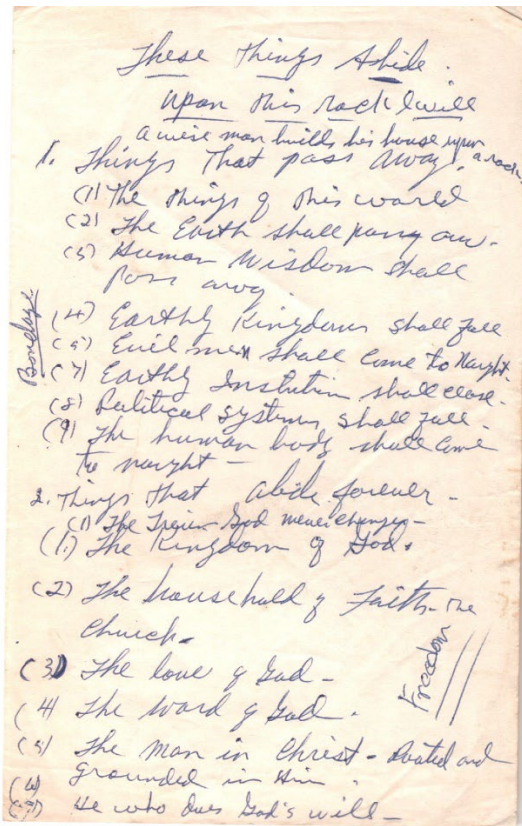 These Things Abide.
upon this rock I will
a wise man builds his house upon
a rock
1. Things That pass away.
(1) The things of this world
(2) The Earth shall pass away.
(3) Human Wisdom shall
Pass away.
Bondage
(4) Earthly Kingdoms shall fall
(5) Evil men shall come to naught.
(7) Earthly Institution shall close.
(8) Political systems shall fall.
(9) The human body shall come
to naught -
2. Things that abide forever -
(1) The God never changes -
(1.) The Kingdom of God.
(2) The household of Faith - The
Church.
Freedom
(3) The love of God -
(4) The word of God.
(5) The man in Christ - Rooted and
grounded in Him.
(6)
(7) He who does God's will -